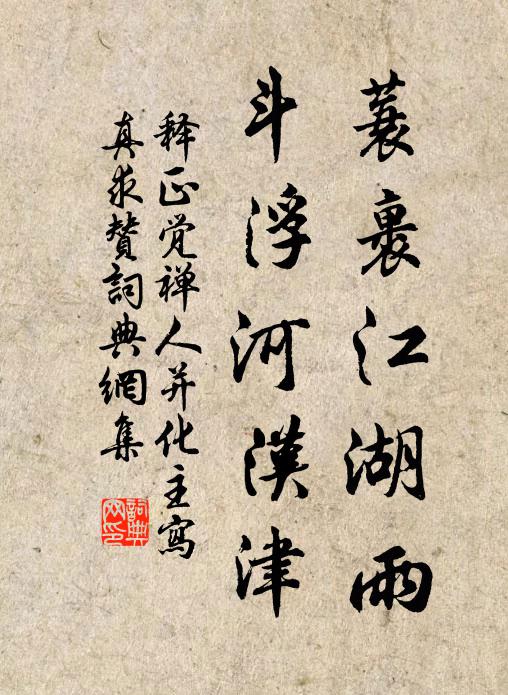 蓑裹江湖雨
斗浮河漢津
释正觉禅人并化主寫
真求赞詞典網集
詞典
网印